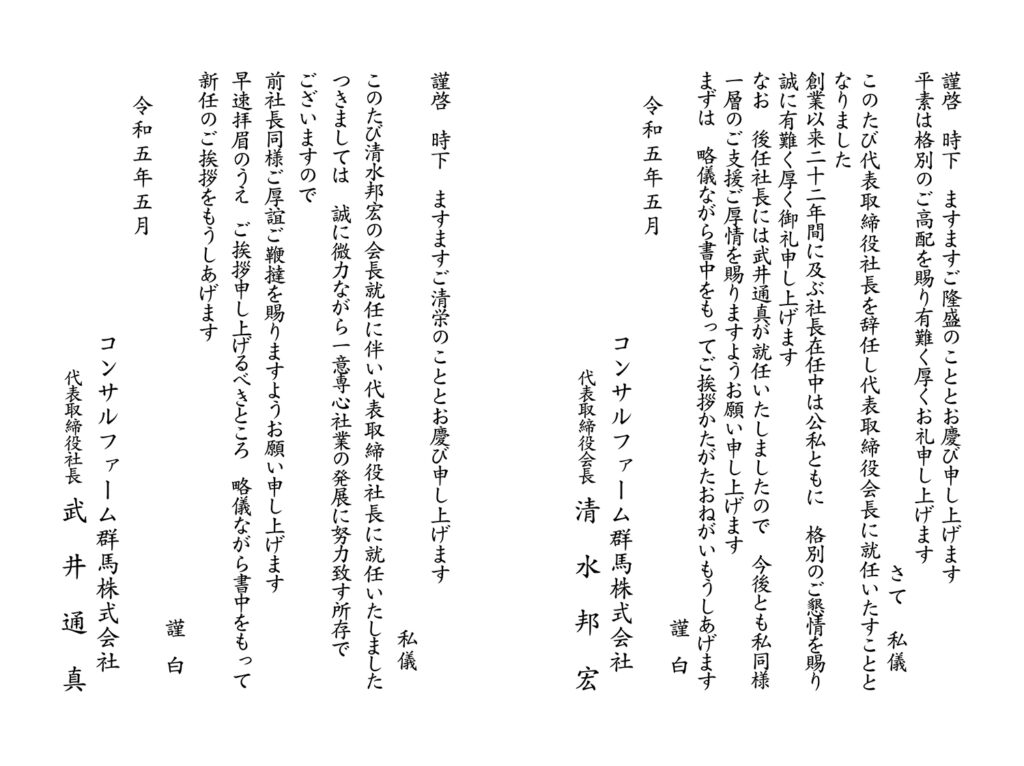 謹啓　時下　ますますご隆盛のこととお慶び申し上げます
平素は格別のご高配を賜り有難く厚くお礼申し上げます
さて　私儀
このたび代表取締役社長を辞任し代表取締役会長に就任いたすことと
なりました
創業以来二十二年間に及ぶ社長在任中は公私ともに　格別のご懇情を賜り
誠に有難く厚く御礼申し上げます
なお　後任社長には武井通真が就任いたしましたので　今後とも私同様
一層のご支援ご厚情を賜りますようお願い申し上げます
まずは　略儀ながら書中をもってご挨拶かたがたおねがいもうしあげます
謹　白
令和五年五月
コンサルファーム群馬株式会社
代表取締役会長　清　水　邦　宏
謹啓　時下　ますますご清栄のこととお慶び申し上げます
私儀
このたび清水邦宏の会長就任に伴い代表取締役社長に就任いたしました
つきましては　誠に微力ながら一意専心社業の発展に努力致す所存で
ございますので
前社長同様ご厚誼ご鞭撻を賜りますようお願い申し上げます
早速拝眉のうえ　ご挨拶申し上げるべきところ　略儀ながら書中をもって
新任のご挨拶をもうしあげます
謹　白
令和五年五月
コンサルファーム群馬株式会社
代表取締役社長　武　井　通　真